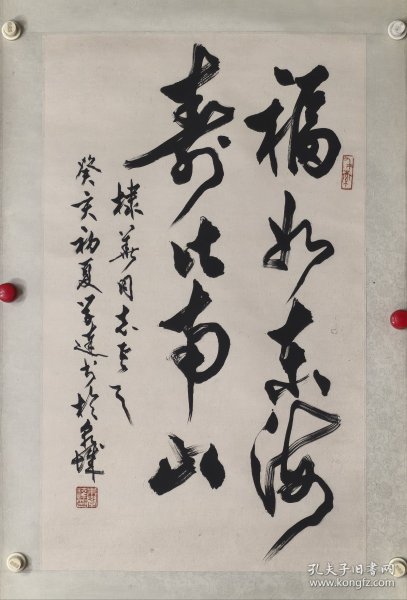 福如东海
寿比南山
棣华同志雅正
癸亥初夏学达书于泉城
孔夫子旧书网
www.kongfz.com